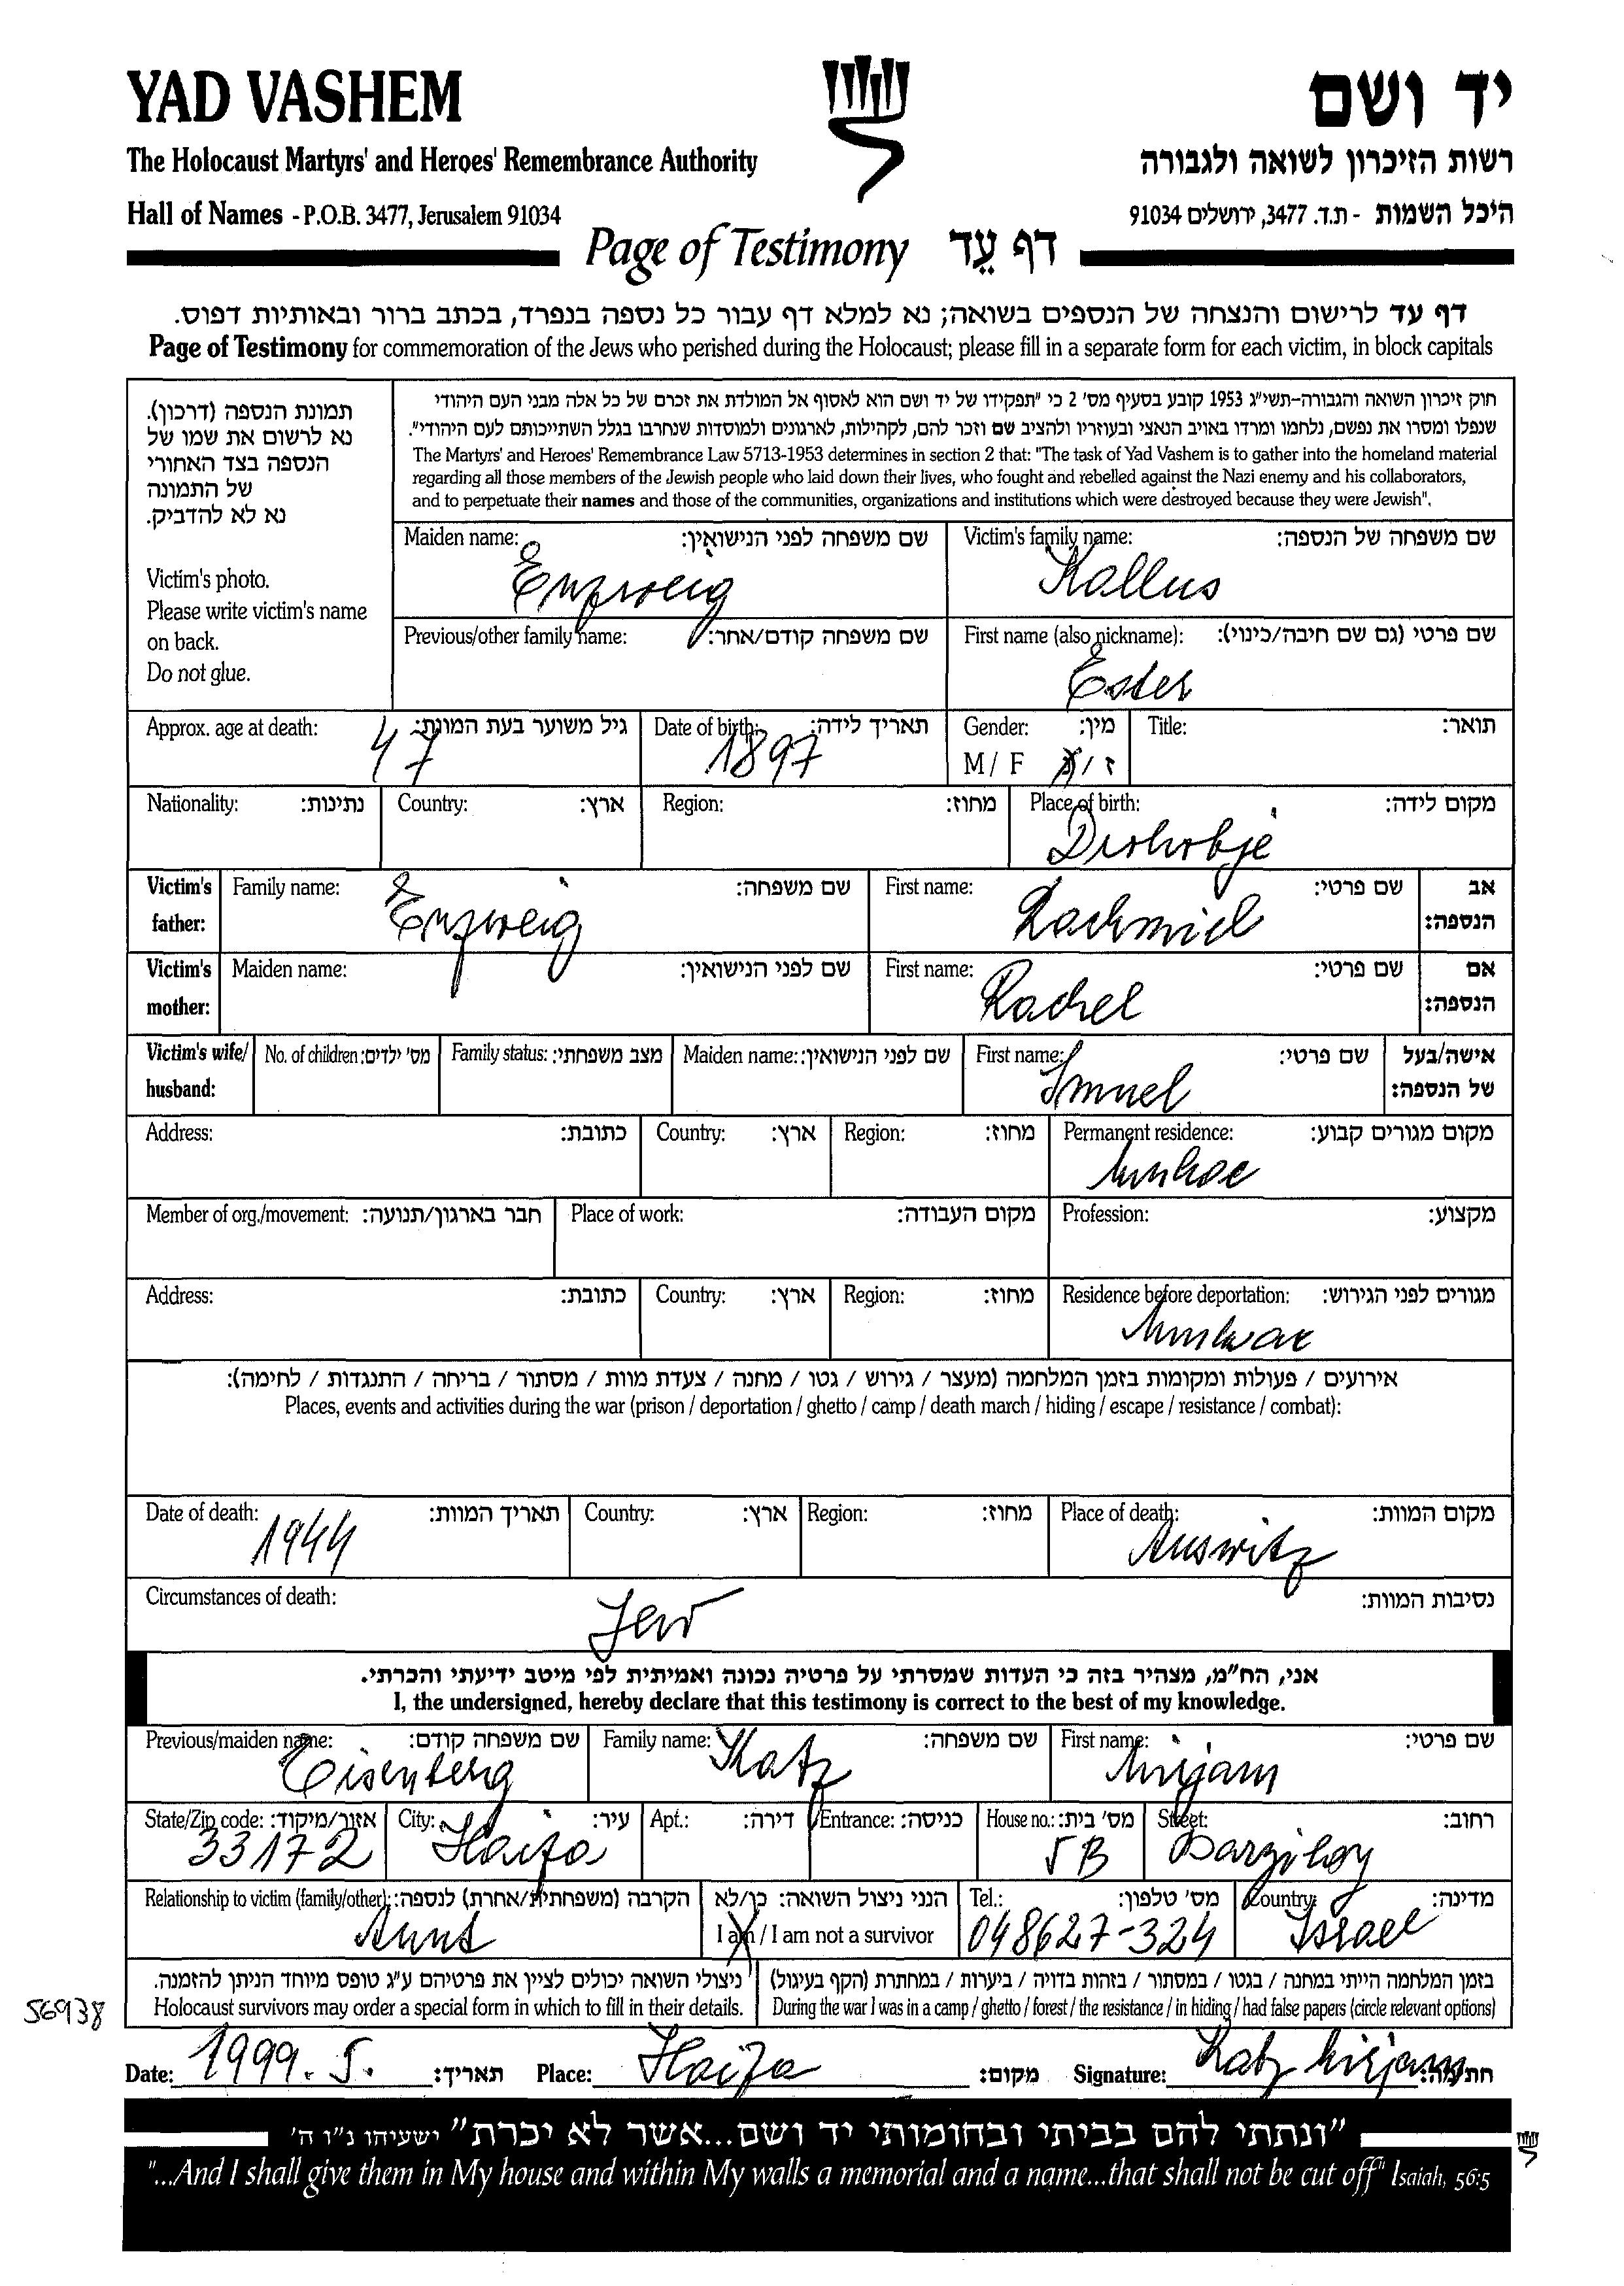 YAD VASHEM
יד ושם
The Holocaust Martyrs' and Heroes' Remembrance Authority
רשות הזיכרון לשואה ולגבורה
Hall of Names - P.O.B. 3477, Jerusalem 91034
היכל השמות - ת.ד. 3477, ירושלים 91034
Page of Testimony דף עֵד
דף עד לרישום והנצחה של הנספים בשואה; נא למלא דף עבור כל נספה בנפרד, בכתב ברור ובאותיות דפוס.
Page of Testimony for commemoration of the Jews who perished during the Holocaust; please fill in a separate form for each victim, in block capitals
תמונת הנספה (דרכון).
נא לרשום את שמו של
הנספה בצד האחורי
של התמונה
נא לא להדביק.
Victim's photo.
Please write victim's name
on back.
Do not glue.
חוק זיכרון השואה והגבורה-תשי"ג 1953 קובע בסעיף מס' 2 כי "תפקידו של יד ושם הוא לאסוף אל המולדת את זכרם של כל אלה מבני העם היהודי
שנפלו ומסרו את נפשם, נלחמו ומרדו באויב הנאצי ובעוזריו ולהציב שם וזכר להם, לקהילות, לארגונים ולמוסדות שנחרבו בגלל השתייכותם לעם היהודי".
The Martyrs' and Heroes' Remembrance Law 5713-1953 determines in section 2 that: "The task of Yad Vashem is to gather into the homeland material
regarding all those members of the Jewish people who laid down their lives, who fought and rebelled against the Nazi enemy and his collaborators,
and to perpetuate their names and those of the communities, organizations and institutions which were destroyed because they were Jewish".
Maiden name: שם משפחה לפני הנישואין:
Enzweig
Victim's family name: שם משפחה של הנספה:
Kallus
Previous/other family name: שם משפחה קודם/אחר:
First name (also nickname): שם פרטי (גם שם חיבה/כינוי):
Ester
Approx. age at death: גיל משוער בעת המוות:
47
Date of birth: תאריך לידה:
1897
Gender: מין:
M / F ז / נ
Title: תואר:
Nationality: נתינות:
Country: ארץ:
Region: מחוז:
Place of birth: מקום לידה:
Victim's father: Family name: שם משפחה:
Enzweig
First name: שם פרטי: אב הנספה:
Rachmiel
Victim's mother: Maiden name: שם לפני הנישואין:
First name: שם פרטי: אם הנספה:
Rachel
Victim's wife/ husband: No. of children: מס' ילדים: Family status: מצב משפחתי: Maiden name: שם לפני הנישואין:
First name: שם פרטי: אישה/בעל של הנספה:
Smuel
Address: כתובת: Country: ארץ: Region: מחוז: Permanent residence: מקום מגורים קבוע:
Member of org./movement: חבר בארגון/תנועה: Place of work: מקום העבודה: Profession: מקצוע:
Address: כתובת: Country: ארץ: Region: מחוז: Residence before deportation: מגורים לפני הגירוש:
אירועים / פעולות ומקומות בזמן המלחמה (מעצר / גירוש / גטו / מחנה / צעדת מוות / מסתור / בריחה / התנגדות / לחימה):
Places, events and activities during the war (prison / deportation / ghetto / camp / death march / hiding / escape / resistance / combat):
Date of death: תאריך המוות:
1944
Country: ארץ: Region: מחוז: Place of death: מקום המוות:
Auswitz
Circumstances of death: נסיבות המוות:
Jew
אני, הח"מ, מצהיר בזה כי העדות שמסרתי על פרטיה נכונה ואמיתית לפי מיטב ידיעתי והכרתי.
I, the undersigned, hereby declare that this testimony is correct to the best of my knowledge.
Previous/maiden name: שם משפחה קודם:
Eisenberg
Family name: שם משפחה:
Katz
First name: שם פרטי:
Mirjam
State/Zip code: אזור/מיקוד:
33172
City: עיר:
Haifa
Apt.: דירה: Entrance: כניסה: House no.: מס' בית:
5B
Street: רחוב:
Barzilay
Relationship to victim (family/other): הקרבה (משפחתית/אחרת) לנספה:
Aunt
הנני ניצול השואה: כן/לא
I am / I am not a survivor
Tel.: מס' טלפון:
048627-324
Country: מדינה:
Israel
ניצולי השואה יכולים לציין את פרטיהם ע"ג טופס מיוחד הניתן להזמנה.
Holocaust survivors may order a special form in which to fill in their details.
בזמן המלחמה הייתי במחנה / בגטו / במסתור / בזהות בדויה / ביערות / במחתרת (הקף בעיגול)
During the war I was in a camp / ghetto / forest / the resistance / in hiding / had false papers (circle relevant options)
56938
Date: 1999. 5. תאריך: Place: Haifa מקום: Signature: Katz Mirjam חתימה:
"ונתתי להם בביתי ובחומותי יד ושם...אשר לא יכרת" ישעיהו נ"ו ה'
"...And I shall give them in My house and within My walls a memorial and a name...that shall not be cut off" Isaiah, 56:5